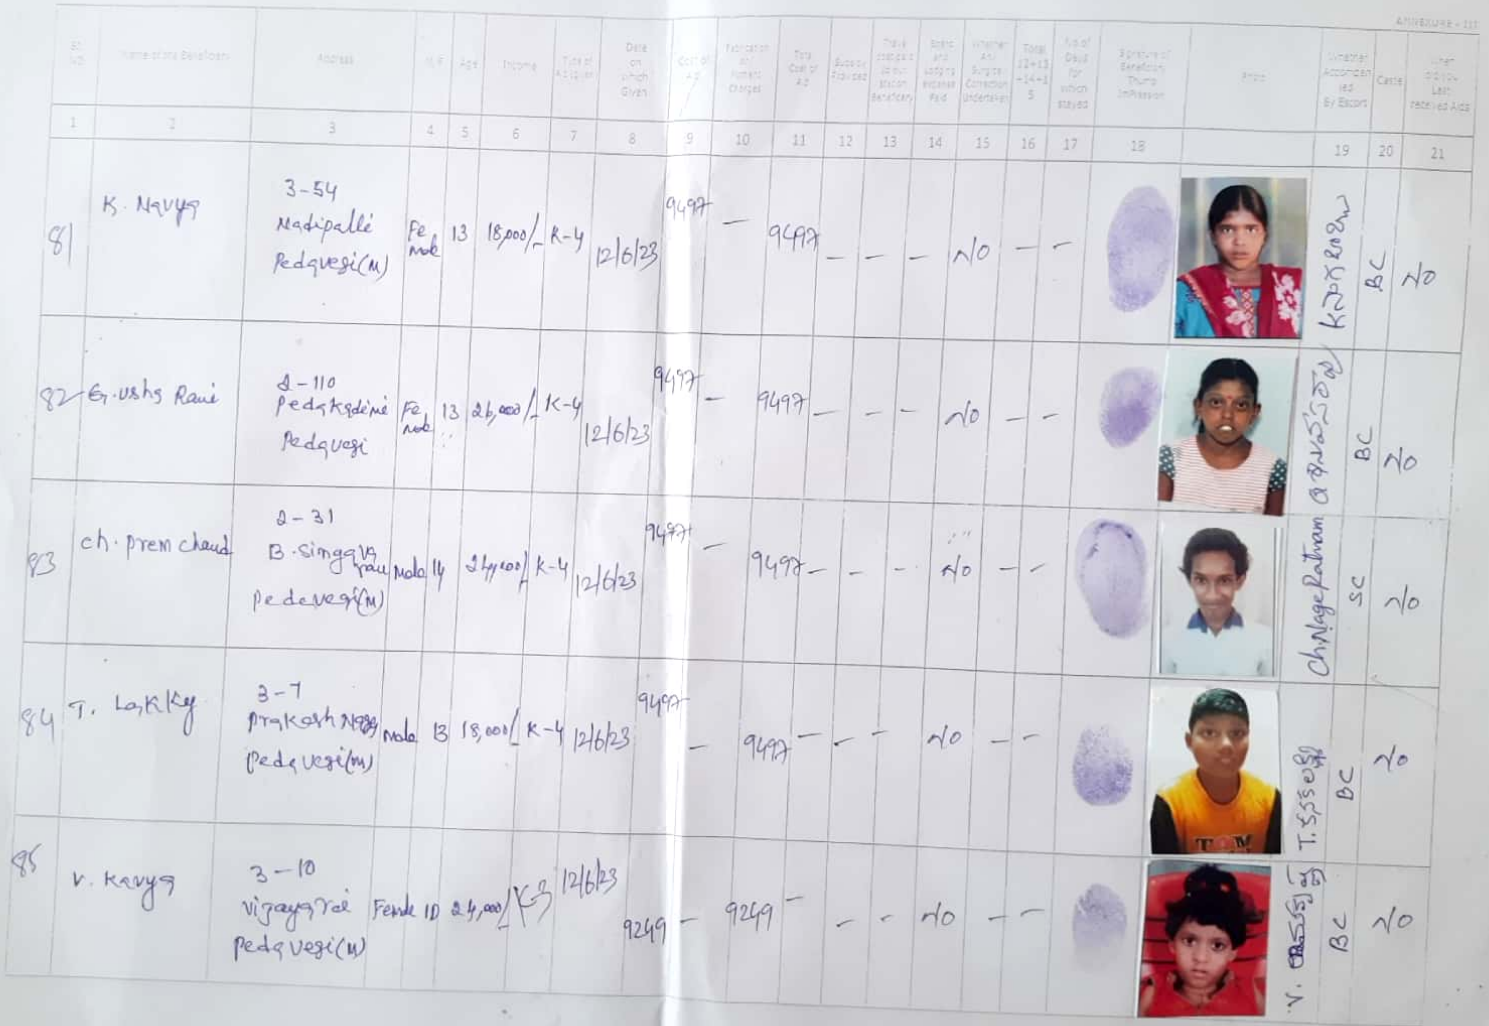 ANNEXURE - III
Sl. No.
Name of the Beneficiary
Address
M/F
Age
Income
Type of Aid given
Date on which Given
Cost of Aid
Fabrication or Fitment Charges
Total Cost of Aid
Subsidy Provided
Travel
Board and Lodging expense Paid
Whether Any Surgical Correction Undertaken
Total 12+13 +14+1 5
No of Days for which stayed
Signature of Beneficiary Thumb Impression
Photo
Whether Accompanied By Escort
Caste
received Aids
1 2 3 4 5 6 7 8 9 10 11 12 13 14 15 16 17 18 19 20 21
81
K. Navya
3-54
Madipalli
Pedavegi(M)
Fe
male
13
18,000/-
K-4
12/6/23
9497
-
9497
- - - NO - -
BC
NO
82
G. Usha Rani
2-110
Pedakadimi
Pedavegi
Fe
male
13
26,000/-
K-4
12/6/23
9497
-
9497
- - - NO - -
BC
NO
83
Ch. Prem Chand
2-31
B. Singava
ram
Pedavegi(M)
Male
14
24,000/-
K-4
12/6/23
9497
-
9497
- - - NO - -
Ch.NageRatnam
SC
NO
84
T. Lakky
3-7
Prakash Naga
Pedavegi(M)
Male
13
18,000/-
K-4
12/6/23
9497
-
9497
- - - NO - -
TOM
BC
NO
85
V. Kavya
3-10
Vijayarai
Pedavegi(M)
Female
10
24,000/-
K-3
12/6/23
9249
-
9249
- - - NO - -
BC
NO